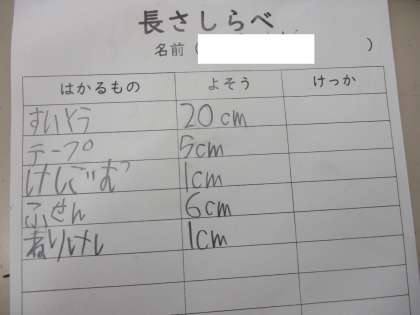 長さしらべ
名前( )
はかるもの よそう けっか
すいとう 20cm
テープ 5cm
けしごむ 1cm
ふせん 6cm
ねりけし 1cm